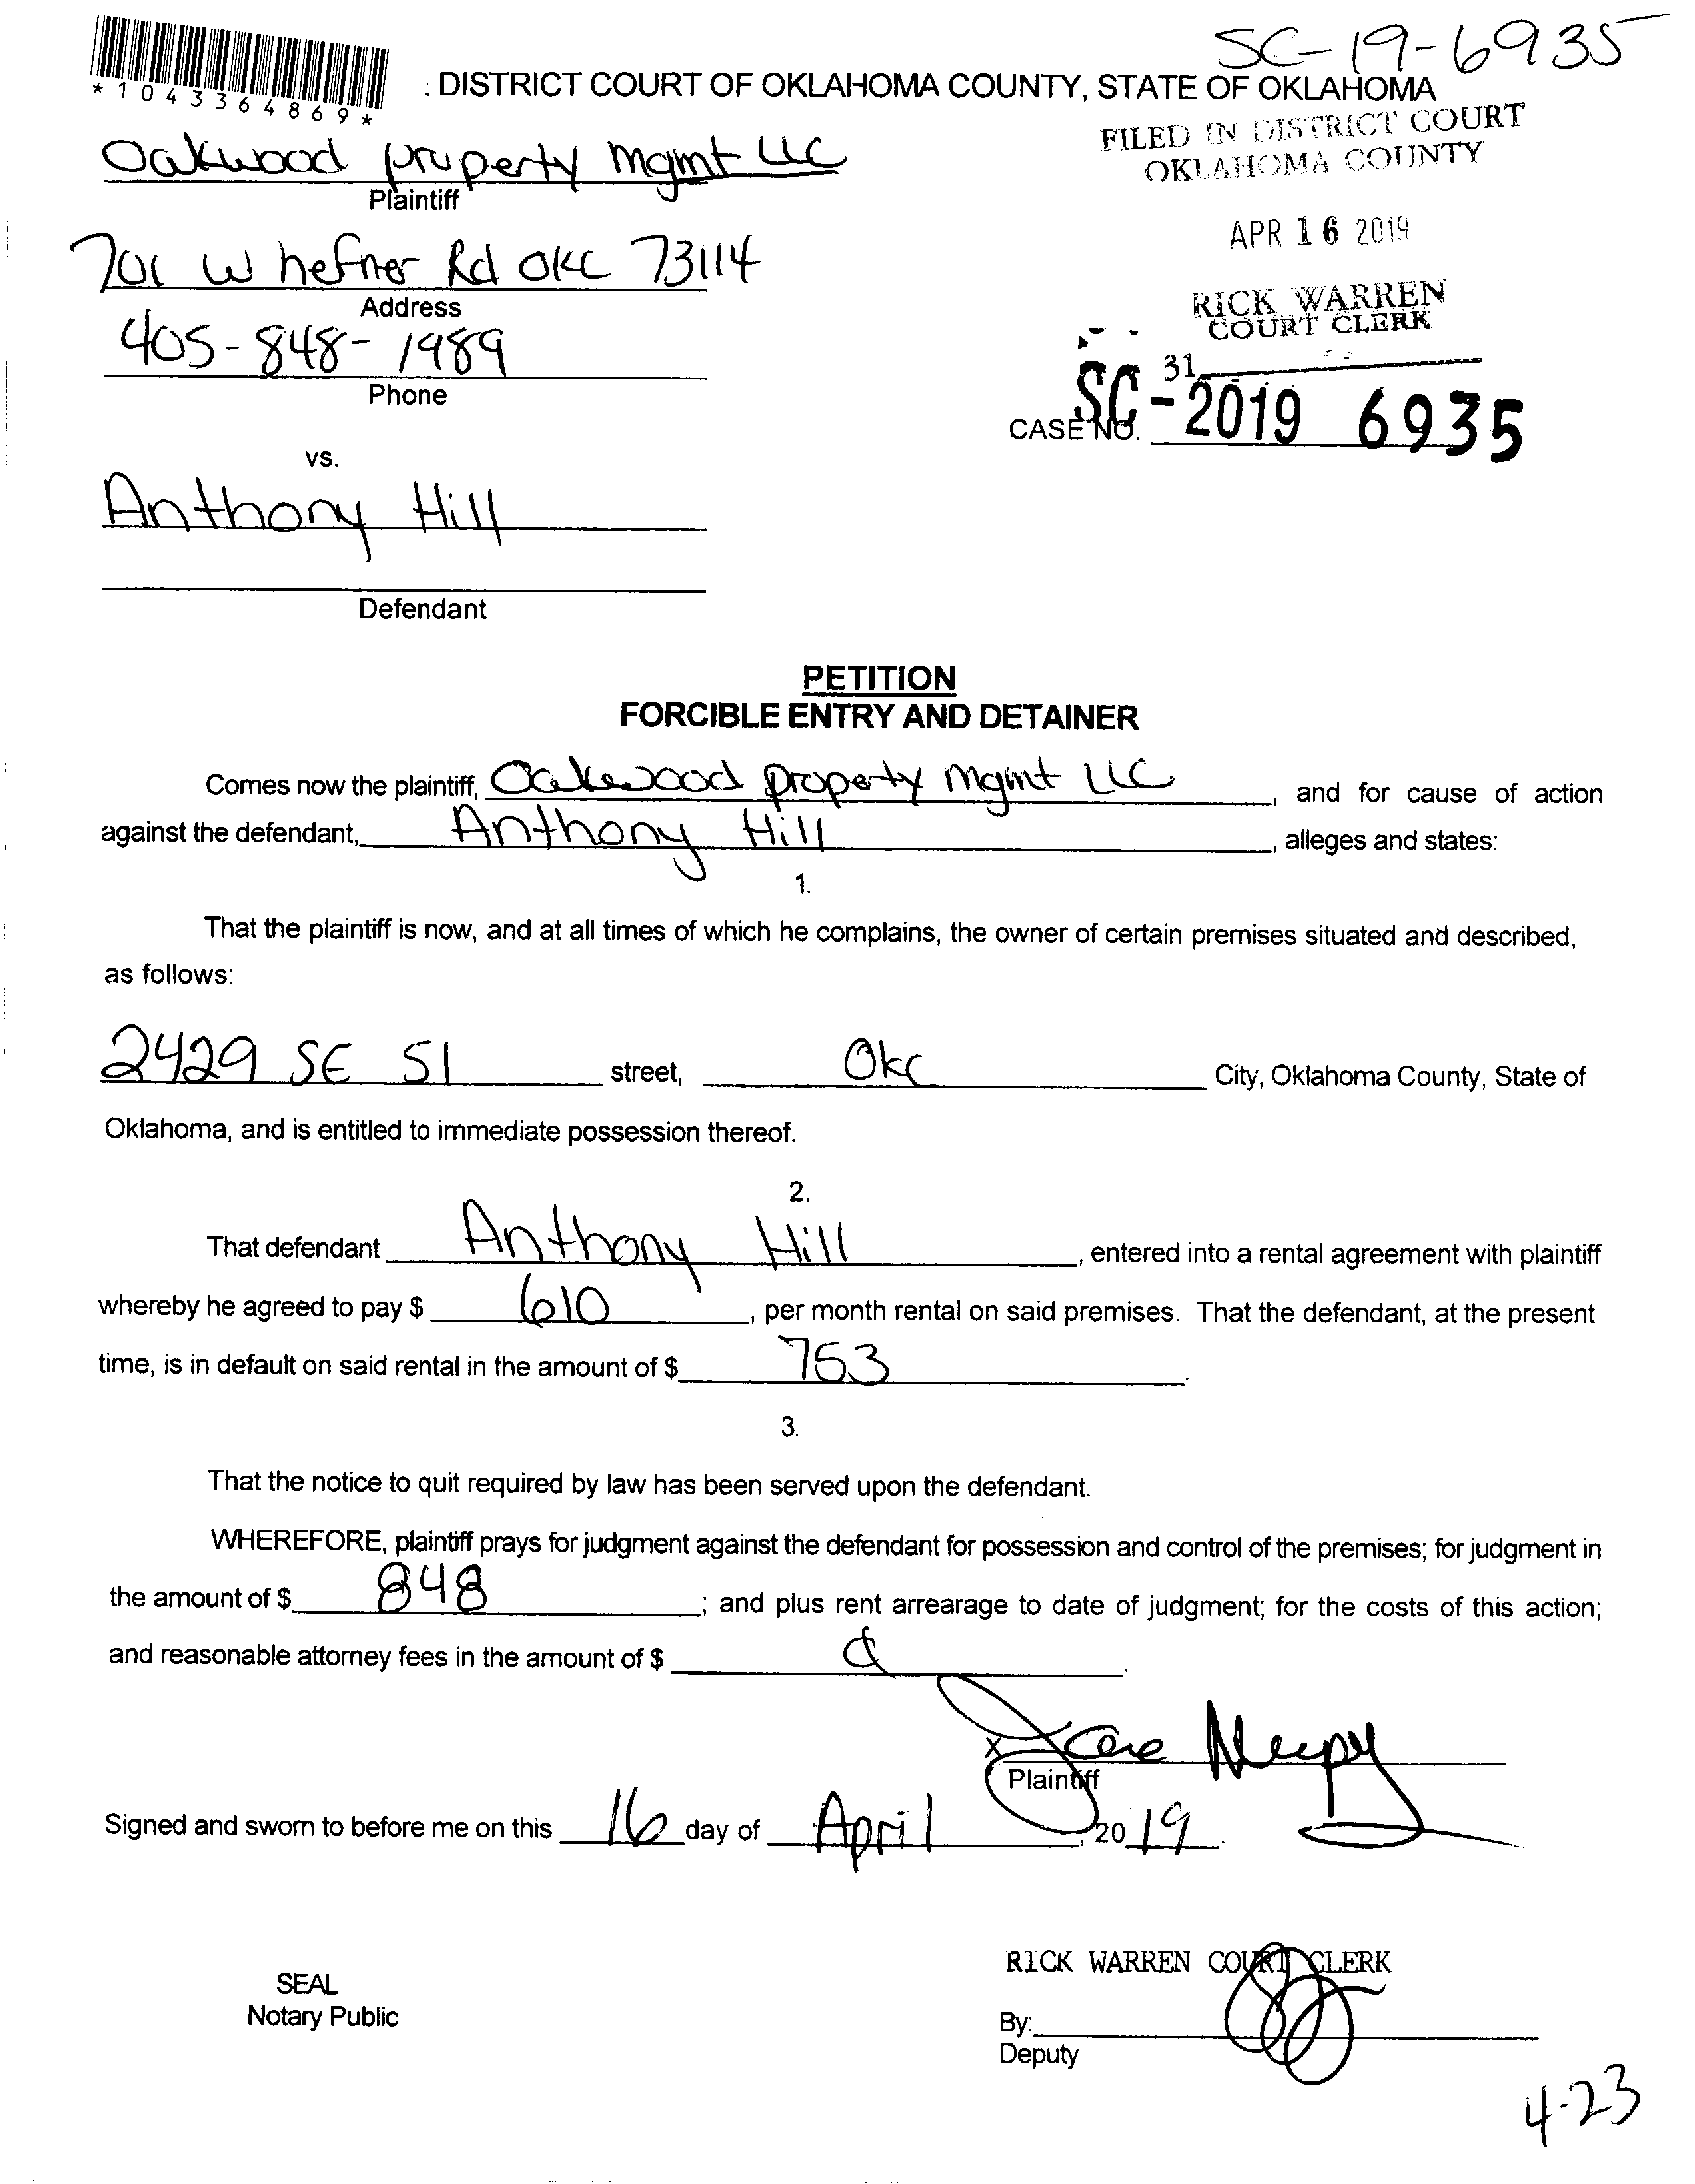 SC-19-6935
*1043364869*
: DISTRICT COURT OF OKLAHOMA COUNTY, STATE OF OKLAHOMA
FILED IN DISTRICT COURT
OKLAHOMA COUNTY
Oakwood property Mgmt LLC
Plaintiff
APR 16 2019
701 W hefner Rd OKC 73114
Address
RICK WARREN
COURT CLERK
405-848-1989
Phone
31
CASE NO. SC-2019 6935
vs.
Anthony Hill
Defendant
PETITION
FORCIBLE ENTRY AND DETAINER
Comes now the plaintiff, Oakewood property Mgmt LLC, and for cause of action
against the defendant, Anthony Hill, alleges and states:
1.
That the plaintiff is now, and at all times of which he complains, the owner of certain premises situated and described,
as follows:
2429 SE 51 street, Okc City, Oklahoma County, State of
Oklahoma, and is entitled to immediate possession thereof.
2.
That defendant Anthony Hill, entered into a rental agreement with plaintiff
whereby he agreed to pay $ 610, per month rental on said premises. That the defendant, at the present
time, is in default on said rental in the amount of $ 753.
3.
That the notice to quit required by law has been served upon the defendant.
WHEREFORE, plaintiff prays for judgment against the defendant for possession and control of the premises; for judgment in
the amount of $ 848; and plus rent arrearage to date of judgment; for the costs of this action;
and reasonable attorney fees in the amount of $
X
Plaintiff
Signed and sworn to before me on this 16 day of April, 2019.
RICK WARREN COURT CLERK
SEAL
Notary Public
By:
Deputy
4-23